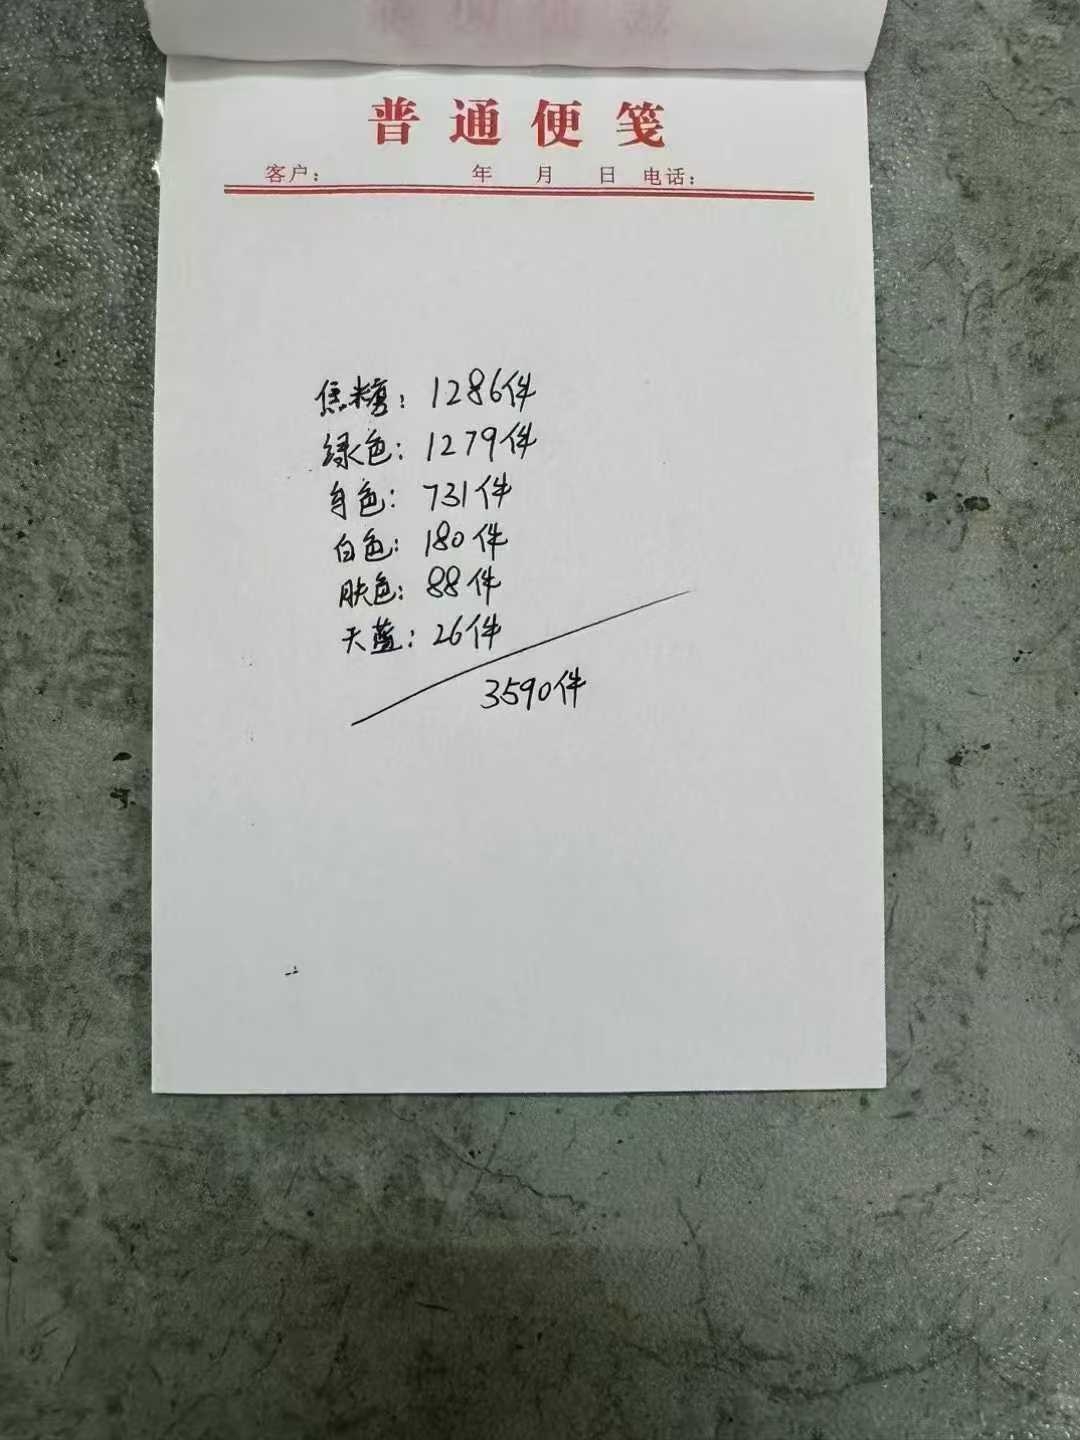 普通便笺
客户： 年 月 日 电话：
焦糖：1286件
绿色：1279件
色：731件
白色：180件
肤色：88件
天蓝：26件
3590件